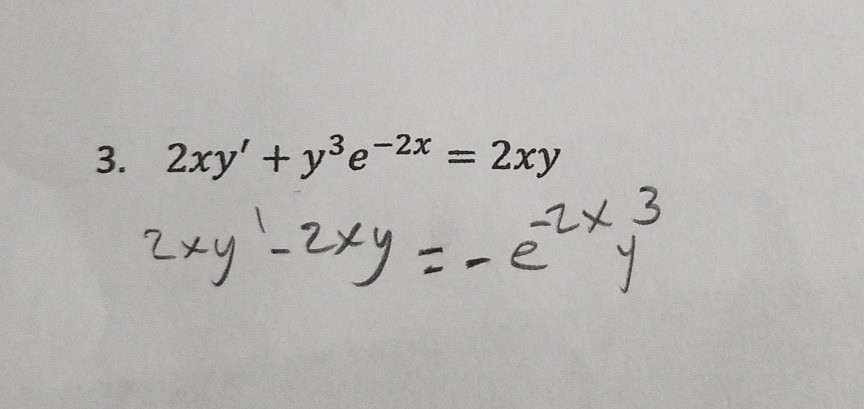 3. 2xy′ + y³e⁻²ˣ = 2xy
2xy' - 2xy = - e⁻²ˣ y³